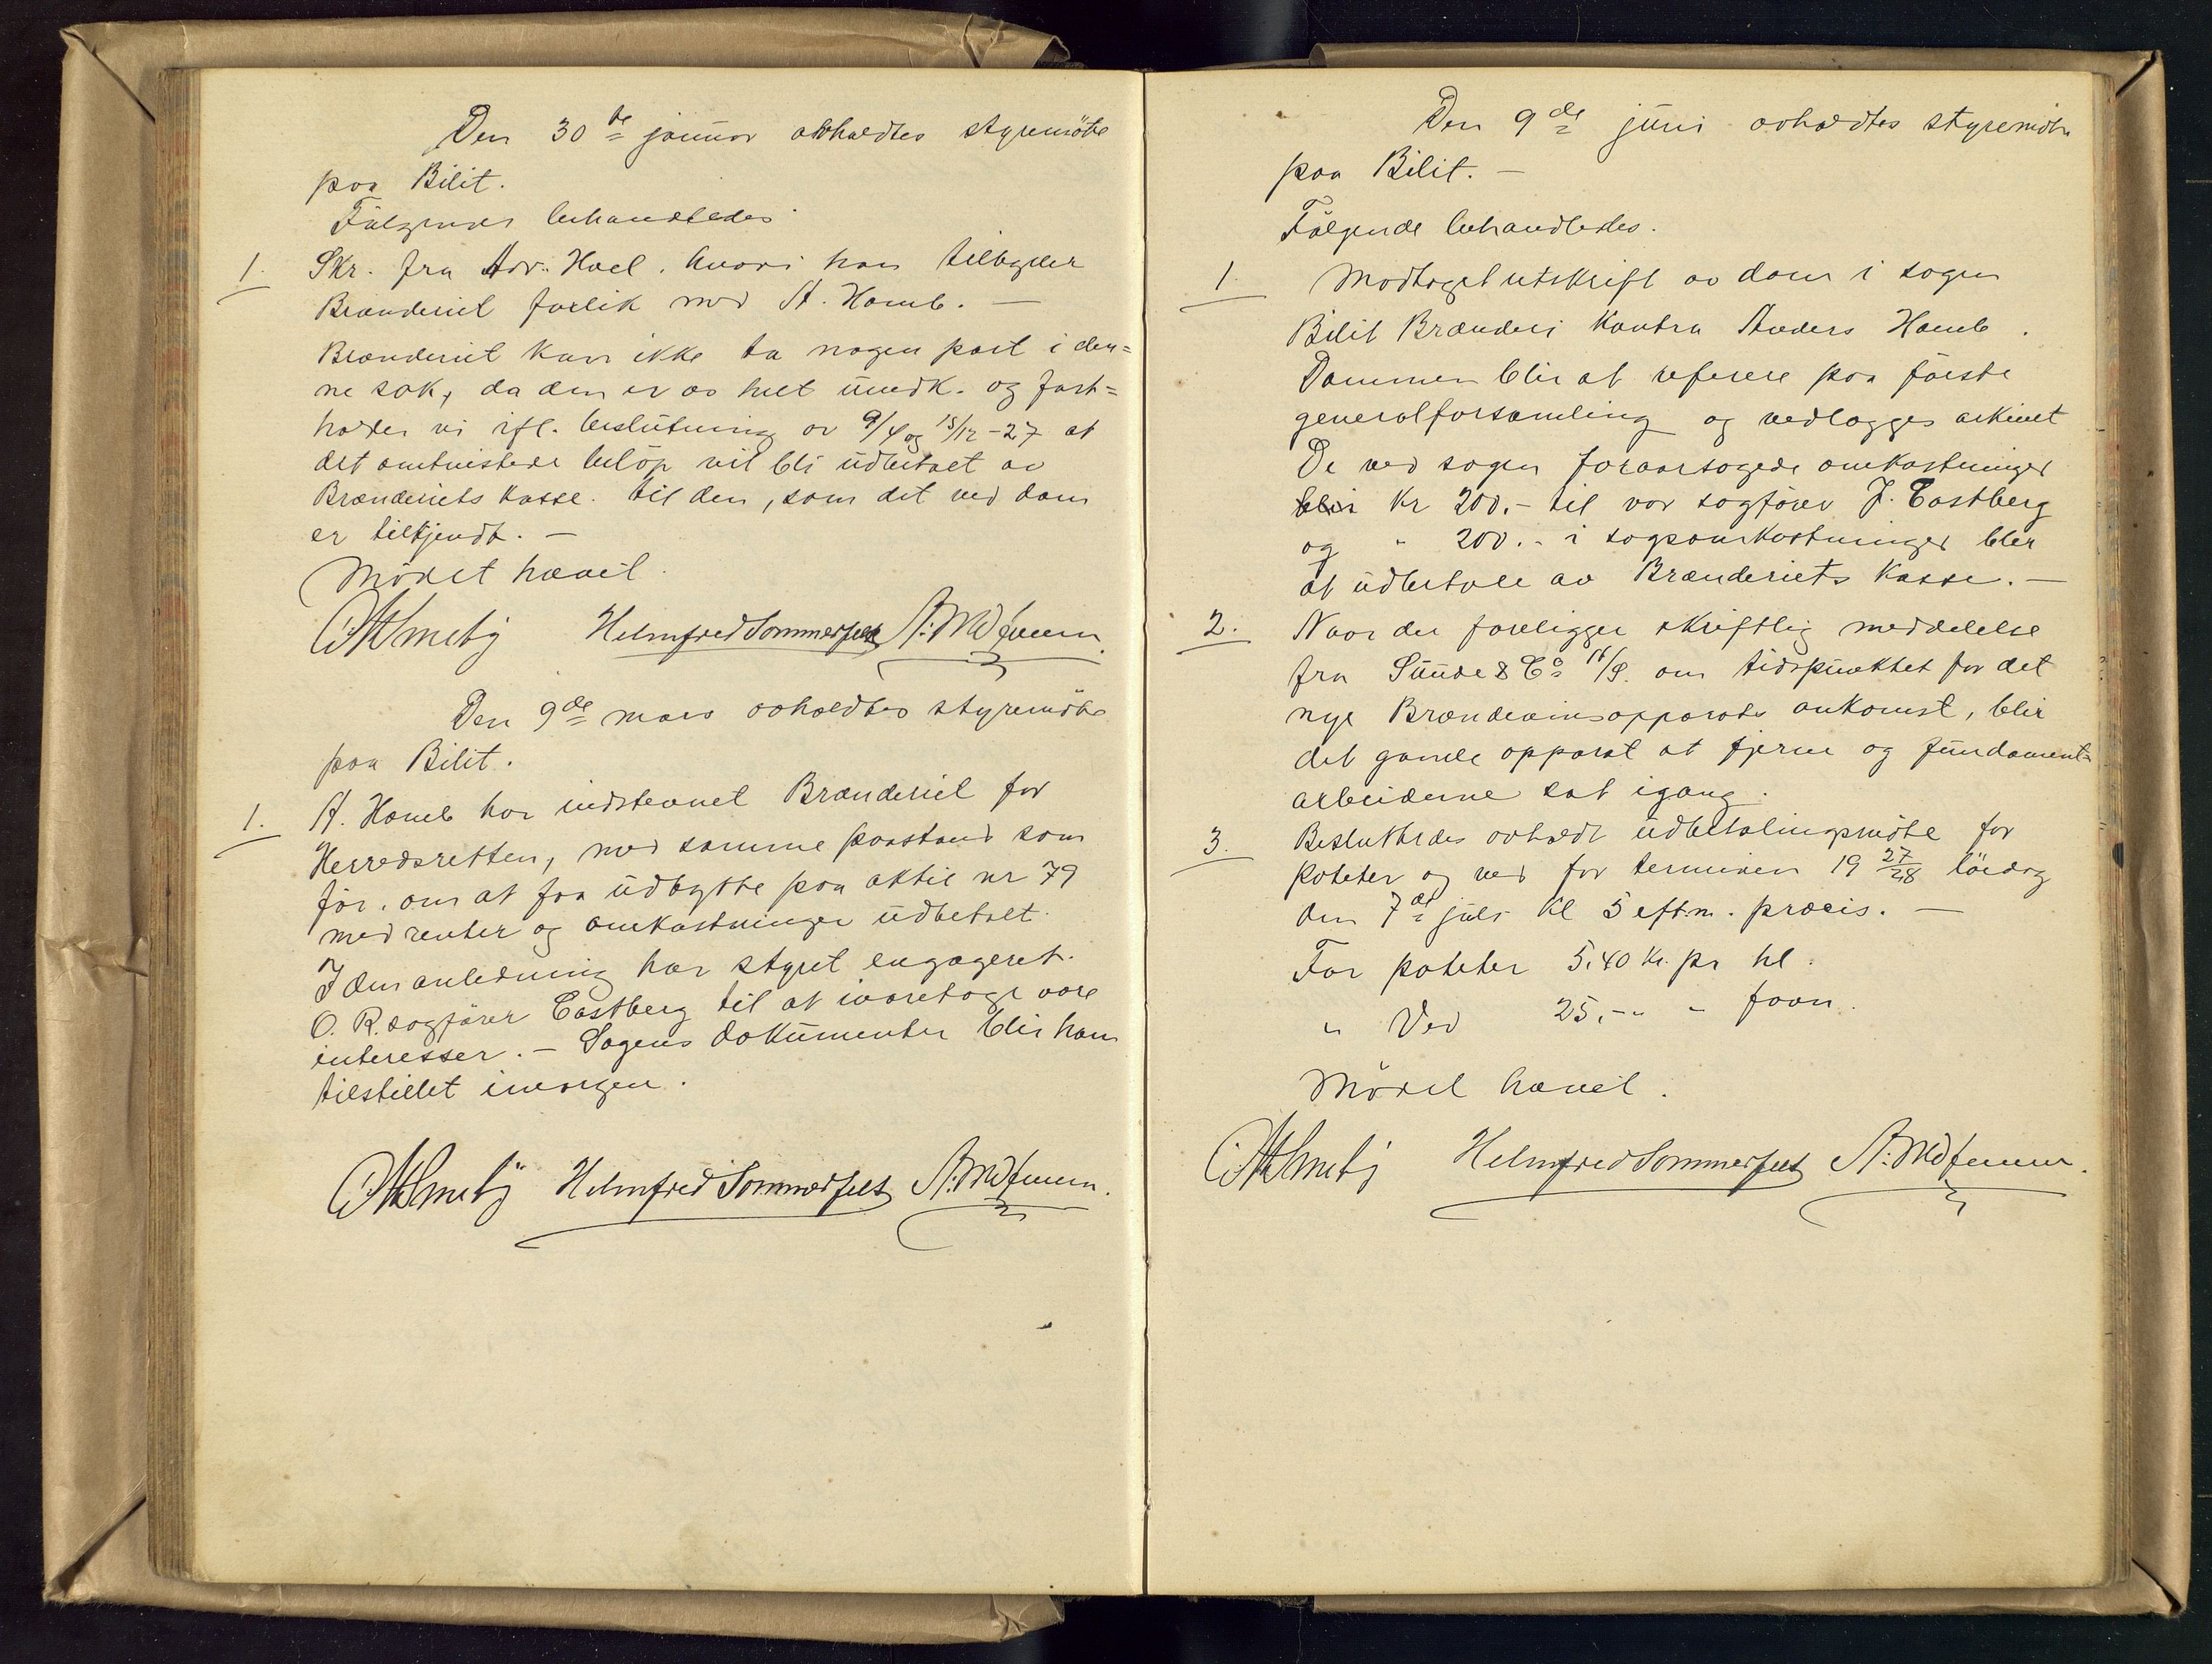 Den 30te januar avholdtes styremöte
paa Bilit.
Fölgende behandledes
1. Skr. fra Adv. Hoel, hvori han tilbyder
Brænderiet forlik med A. Homb. —
Brænderiet kan ikke ta nogen part i den=
ne sak, da den er os helt uvedk. og fast=
holder vi ifl. beslutning av 9/4 og 15/12-27 at
det omtvistede belöp vil bli udbetalt av
Brænderiets kasse. til den, som det ved dom
er tilkjendt. —
Mödet hævet.
Helmfred Sommerfelt
Den 9de mars avholdtes styremöte
paa Bilit.
1. A. Homb har indstevnet Brænderiet for
Herredsretten, med samme paastand som
för. om at faa udbytte paa aktie nr 79
med renter og omkostninger udbetalt.
I den anledning har styret engageret
O. R. sagförer Castberg til at ivaretage vore
interesser. — Sagens dokumenter blir ham
tilstillet imorgen.
Helmfred Sommerfelt
Den 9de juni avholdtes styremöte
paa Bilit. —
Fölgende behandledes.
1. Modtaget utskrift av dom i sagen
Bilit Brænderi kontra Anders Homb.
Dommen blir at referere paa förste
generalforsamling og vedlægges arkivet
De ved sagen foraarsagede omkostninger
blir kr 200.- til vor sagförer J. Castberg
og " 200.- i sagsomkostninger blir
at udbetale av Brænderiets kasse. —
2. Naar der foreligger skriftlig meddelelse
fra Sunde & Co om tidspunktet for det
nye Brændevinsapparats ankomst, blir
det gamle apparat at fjerne og fundament=
arbeiderne sat igang.
3. Besluttedes avholdt udbetalingsmöte for
poteter og ved for terminen 19 27/28 lördag
den 7de juli kl 5 eftm. præcis. —
For poteter 5,40 kr. pr hl.
" Ved 25,- " " favn.
Mödet hævet.
Helmfred Sommerfelt